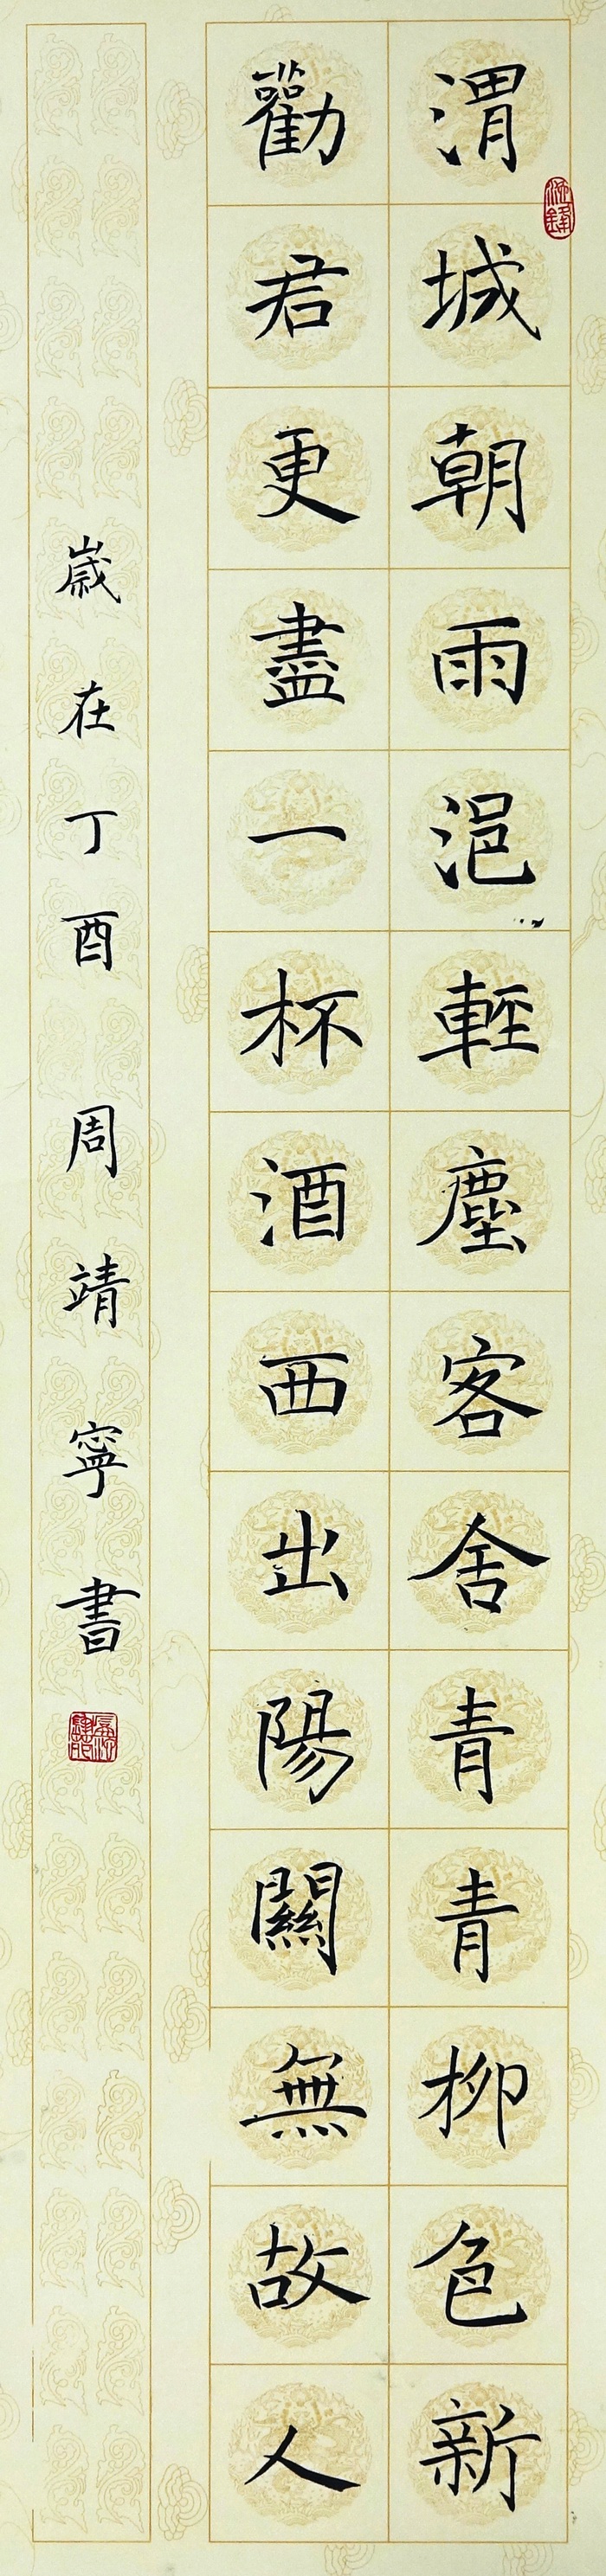 渭城朝雨浥輕塵客舍青青柳色新
勸君更盡一杯酒西出陽關無故人
歲在丁酉周靖寧書